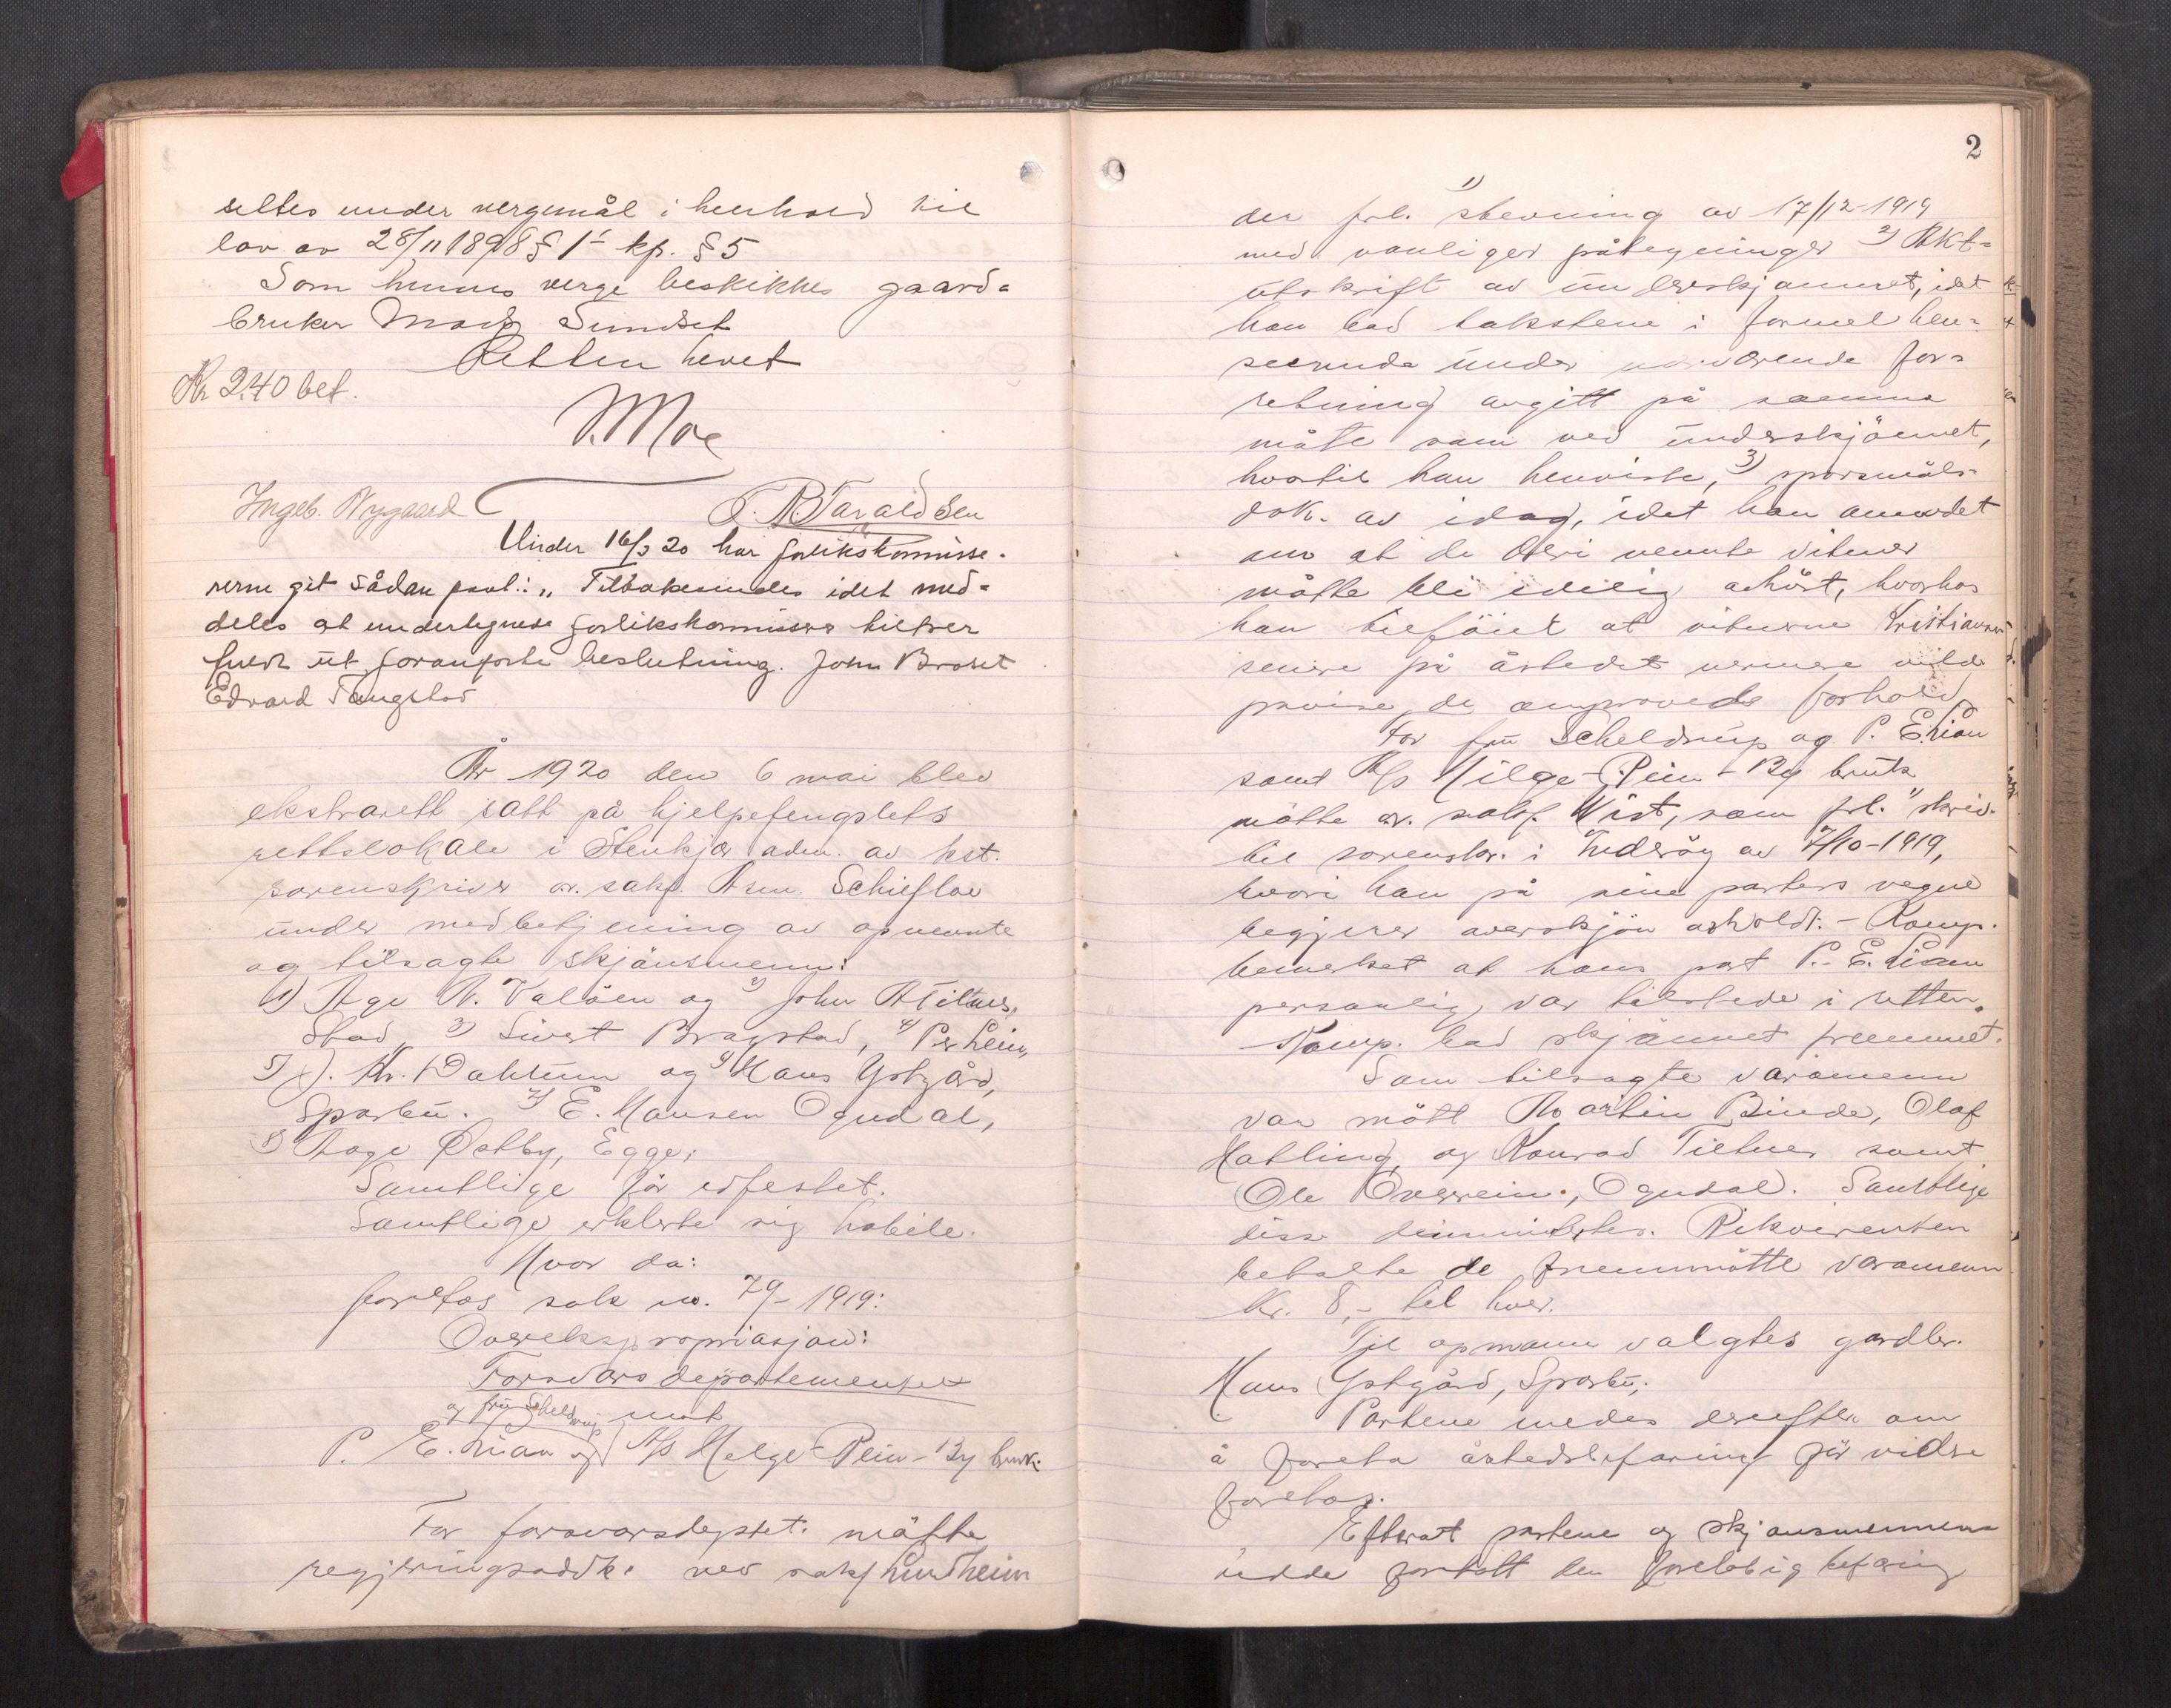 settes under vergemål i henhold til
lov av 28/11 1898 § 1 - kp. § 5
Som hennes verge beskikkes gaard-
bruker Sundset
Retten hevet
Kr 2.40 bet.
Moe
Ingeb. Nygaard T. B. Taraldsen
Under 16/3 20 har forlikskommisse-
rerne git sådan paat.: „Tilbakesendes idet med-
deles at undertegnede forlikskommissærer tiltrer
ut foranførte beslutning. John Broset
Edvard Tangstad
År 1920 den 6 mai blev
ekstrarett satt på hjelpefengslets
rettslokale i Stenkjær adm. av kst.
sorenskriver or. sakf. Asm. Schiefloe
under medbetjening av opnevnte
og tilsagte skjønsmenn:
1) Age N. Valøen og 2) John A Tilnes,
Stod, 3) Sivert Bragstad, 4) Per Heim,
5) J. Kr. Dahlum og 6) Hans Ystgård,
Sparbu. 7) E. Hansen Ogndal,
8) Aage Østby, Egge.
Samtlige før edfestet.
Samtlige erklerte sig habile.
Hvor da:
foretas sak no. 79 - 1919:
Overekspropriasjon:
Forsvarsdepartementet
og fru Scheldrup mot
P. E. Lian og A/S Helge-Rein-By bruk.
For forsvarsdeptet. møtte
regjeringsadvk. ved sakf Lundheim
2
der frl. 1) stevning av 17/12-1919
med vanliger påtegninger 2) Akt-
utskrift av underskjønnet, idet
han bad takstene i formel hen-
seende under nærværende for-
retning avgitt på samme
måte som ved underskjønnet,
hvortil han henviste, 3) spørsmåls-
dok. av idag, idet han anmodet
om at de deri nevnte vitner
måtte bli edelig avhørt, hvorhos
han tilføiet at vitnerne
senere på åstedet nermere vilde
påvise de omprovede forhold.
For fru Scheldrup og P. E. Lian
samt A/S Helge-Rein-By bruk
møtte or. sakf. Wist, som frl. 1) skriv.
til sorenskr. i Inderøy av 7/10-1919,
hvori han på sine parters vegne
begjerer overskjøn avholdt. - Komp.
bemerket at hans part P. E. Lian
personlig var tilstede i retten.
Komp. bad skjønnet fremmet.
Som tilsagte varamenn
var møtt Martin Binde, Olaf
Hatling og Konrad Tilnes samt
Ole Overrein, Ogndal. Samtlige
disse dimmitertes. Rekvirenten
betalte de fremmøtte varamenn
Kr. 8,- til hver.
Til opmann valgtes gardbr.
Hans Ystgård, Sparbu.
Partene enedes derefter om
å foreta åstedsbefaring før videre
foretas.
Efterat partene og skjønsmennene
hadde foretatt den foreløbig befaring